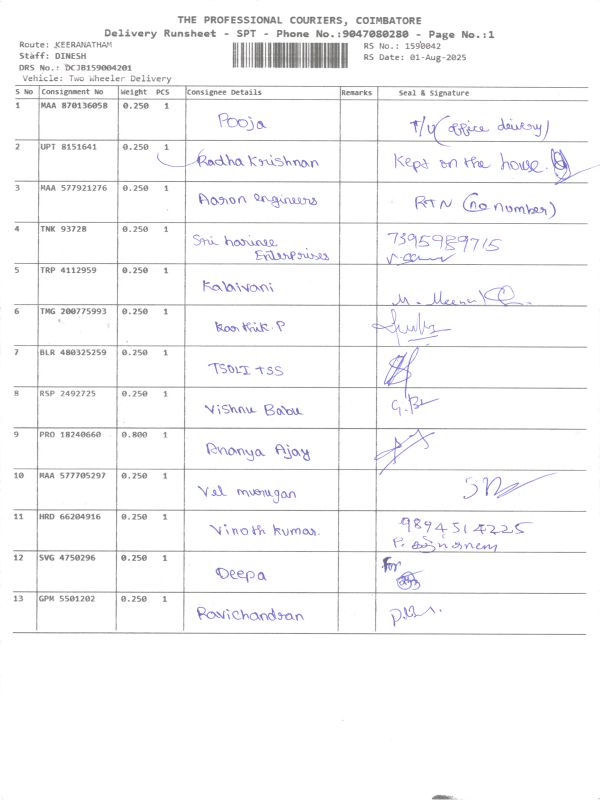 THE PROFESSIONAL COURIERS, COIMBATORE
Delivery Runsheet - SPT - Phone No.:9047080280 - Page No.:1
Route: KEERANATHAM
RS No.: 1590042
Staff: DINESH
RS Date: 01-Aug-2025
DRS No.: DCJB159004201
Vehicle: Two Wheeler Delivery
S No Consignment No Weight PCS Consignee Details Remarks Seal & Signature
1 MAA 870136058 0.250 1
Pooja T/U (office delivery)
2 UPT 8151641 0.250 1
Radha Krishnan Kept on the house.
3 MAA 577921276 0.250 1
Aaron engineers RTN (no number)
4 TNK 93728 0.250 1
Sri harinee 7395989715
Enterprises
5 TRP 4112959 0.250 1
Kalaivani
M. Meena
6 TMG 200775993 0.250 1
Karthik. P
7 BLR 480325259 0.250 1
TSOLI TSS
8 RSP 2492725 0.250 1
Vishnu Babu
9 PRO 18240660 0.800 1
Ananya Ajay
10 MAA 577705297 0.250 1
Vel murugan
11 HRD 66204916 0.250 1
Vinoth Kumar. 9894514225
12 SVG 4750296 0.250 1
For
Deepa
13 GPM 5501202 0.250 1
Ravichandran